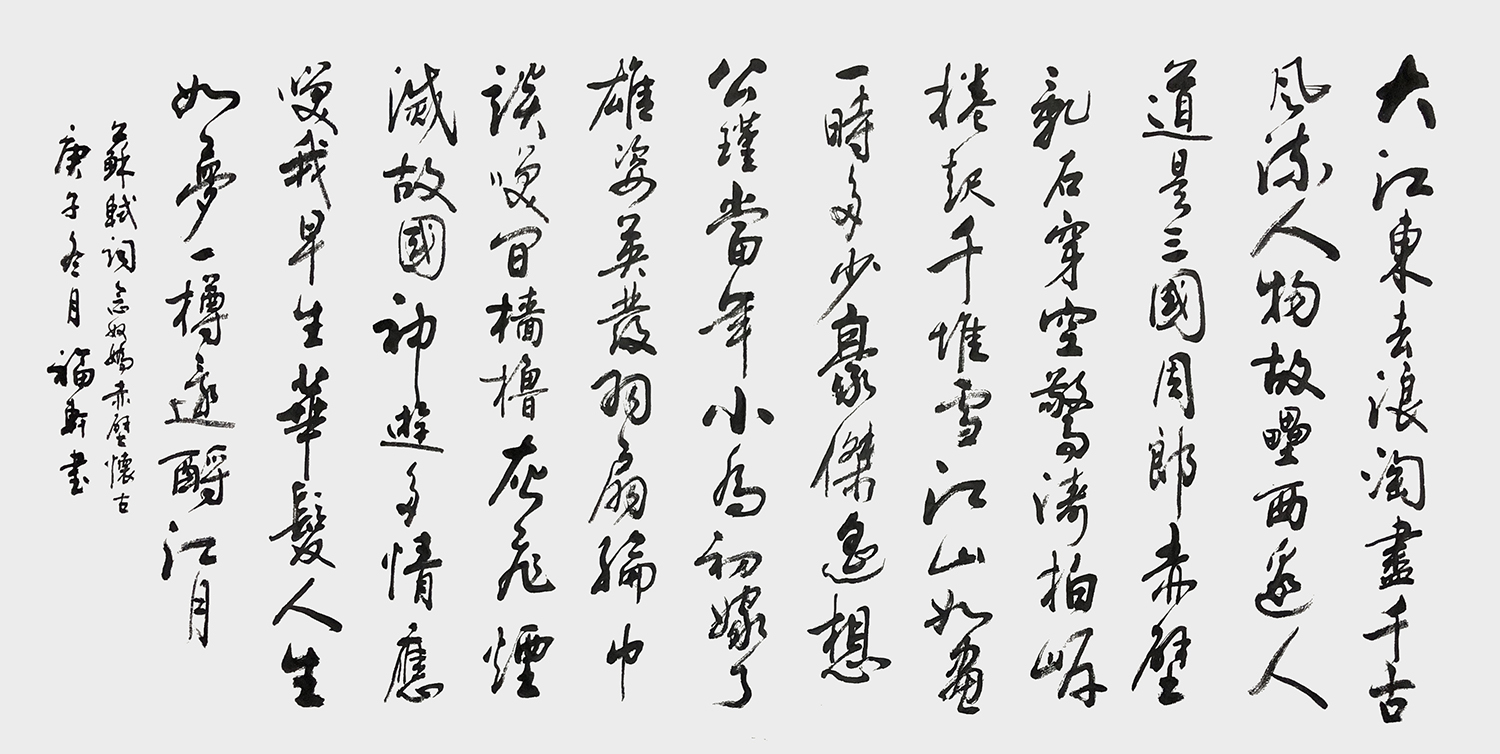 大江東去浪淘盡千古
風流人物故壘西邊人
道是三國周郎赤壁
亂石穿空驚濤拍岸
捲起千堆雪江山如畫
一時多少豪傑遙想
公瑾當年小喬初嫁了
雄姿英發羽扇綸巾
談笑間檣櫓灰飛煙
滅故國神遊多情應
笑我早生華髮人生
如夢一樽還酹江月
蘇軾詞念奴嬌赤壁懷古
庚子冬月福軒書